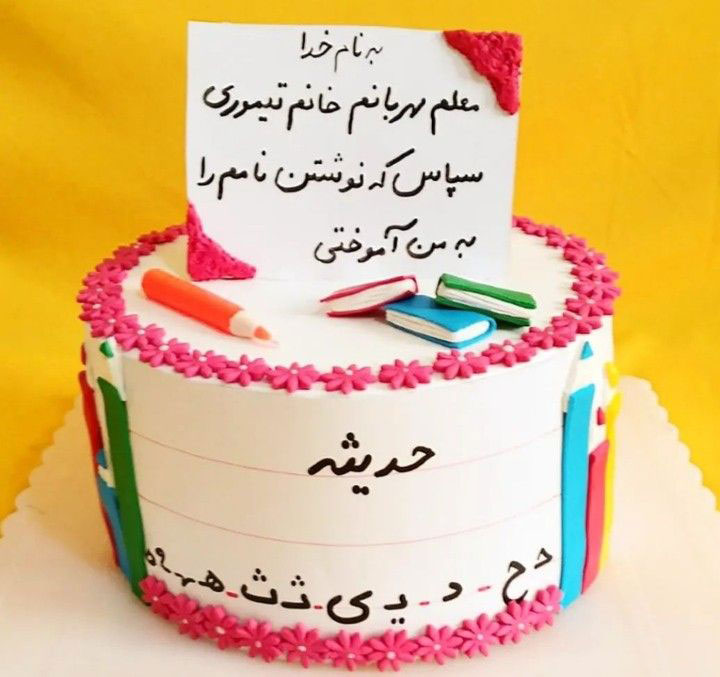 به نام خدا
معلم مهربانم خانم تیموری
سپاس که نوشتن نامم را
به من آموختی
حدیثه
حـ ح - د - یـ ی - ثـ ث - هـ ـهـ ـه ه